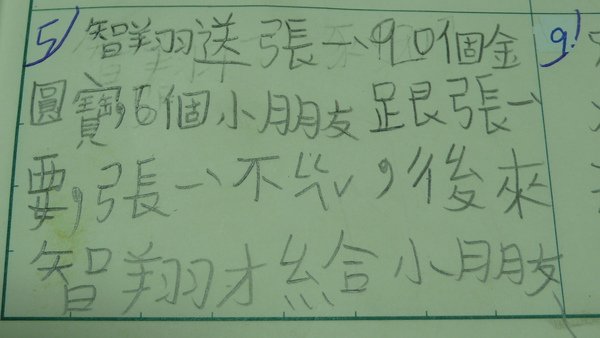 5 智翔送張一90個金 9
圓寶,6個小朋友跟張一
要,張一不 ,後來
智翔才給小朋友